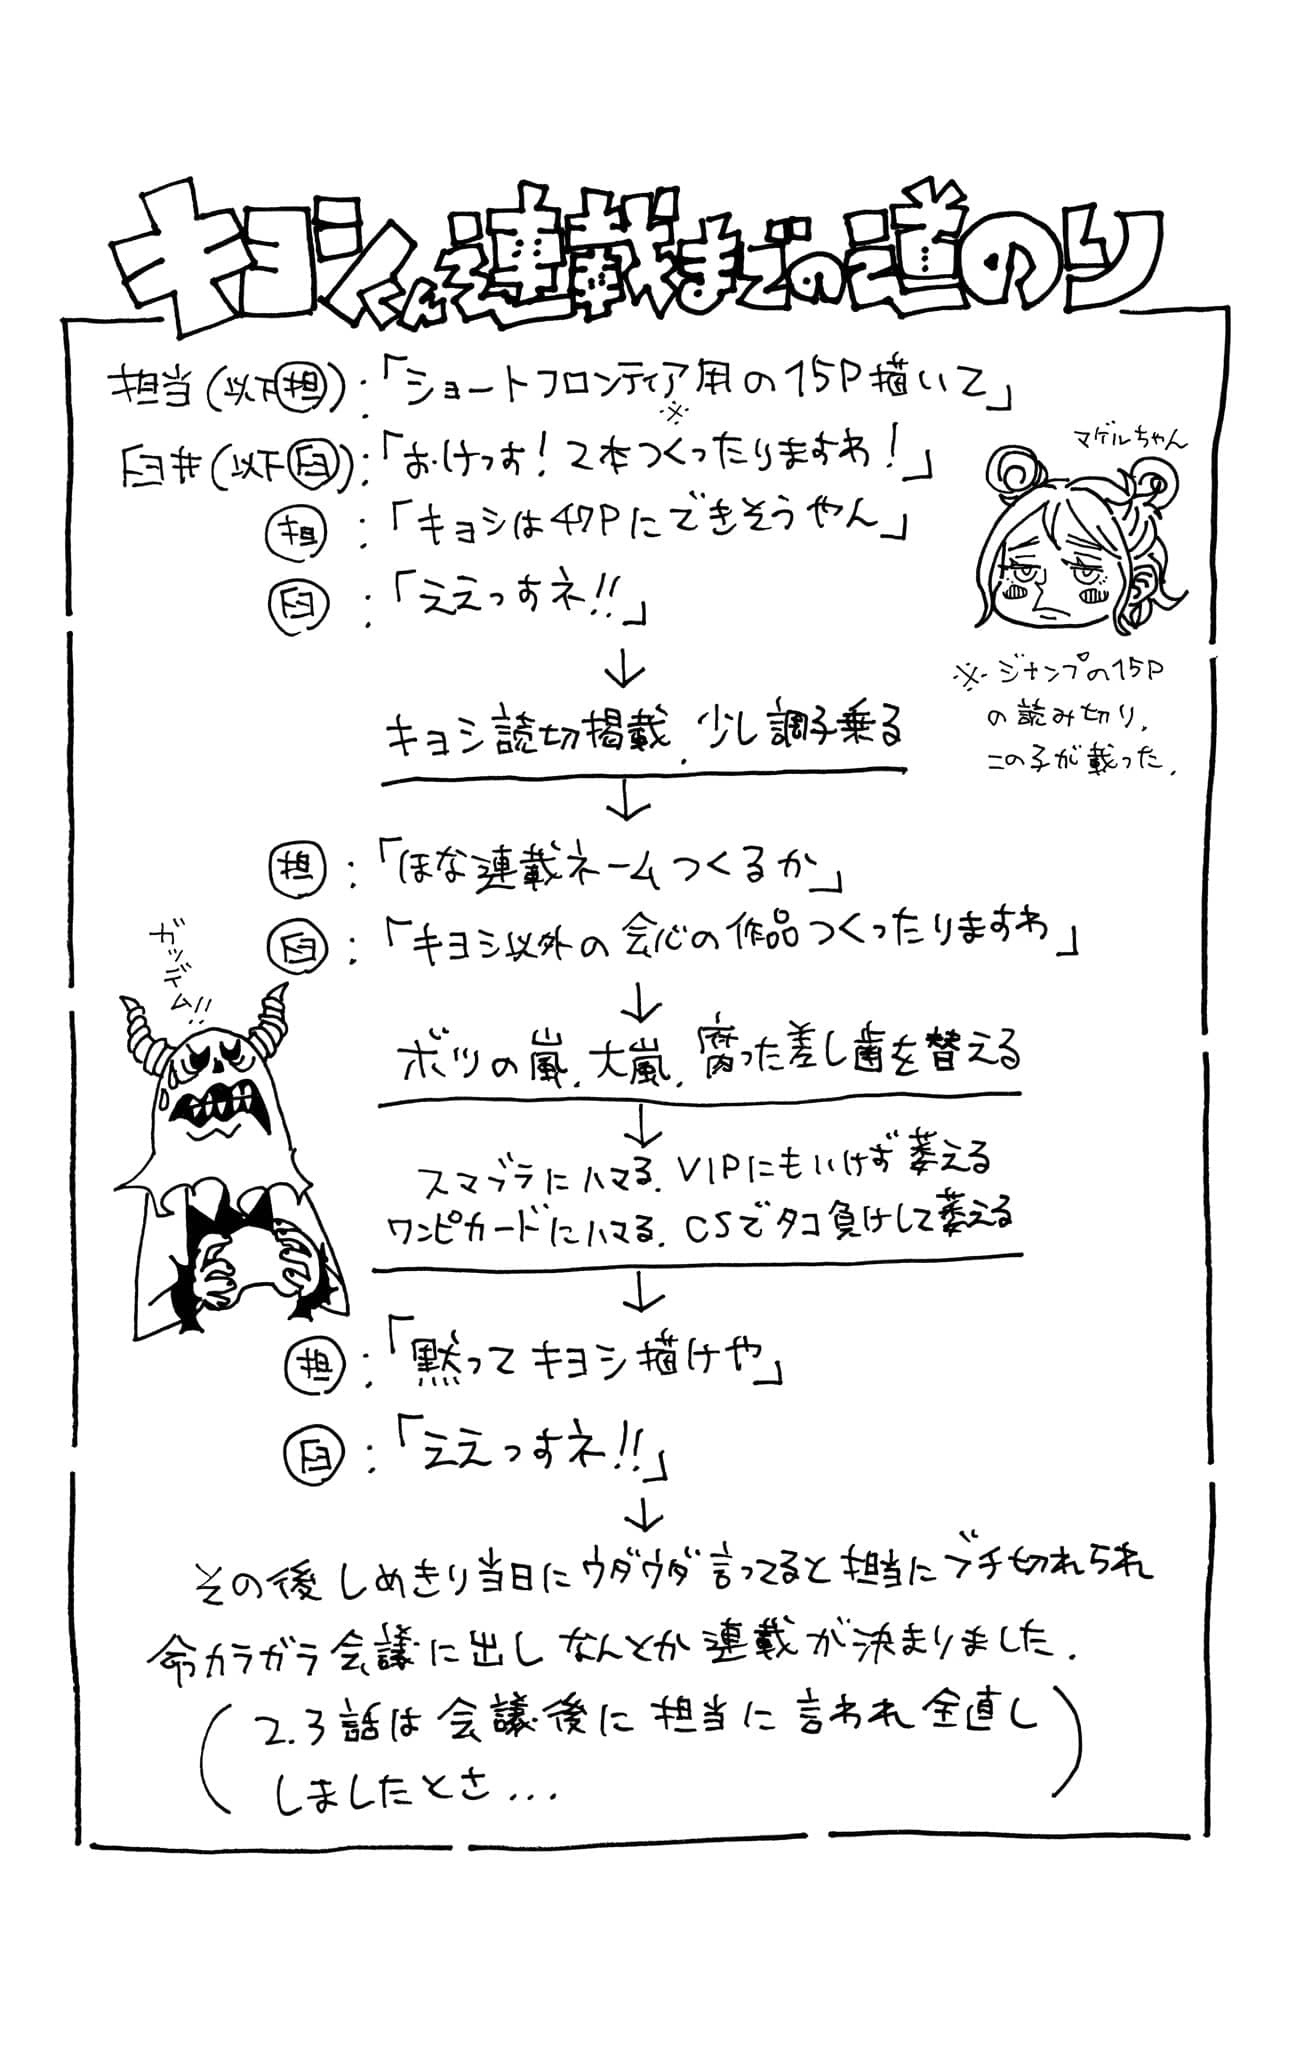 キヨシくん連載までの道のり
担当(以下担):「ショートフロンティア用の15P描いて」
※
臼井(以下臼):「おけっす!2本つくったりますわ!」
マゲルちゃん
担:「キヨシは47Pにできそうやん」
臼:「ええっすネ!!」
↓
※ジャンプの15P
の読み切り.
この子が載った.
キヨシ読切掲載.少し調子乗る
↓
担:「ほな連載ネームつくるか」
臼:「キヨシ以外の会心の作品つくったりますわ」
ガッデム!!
↓
ボツの嵐.大嵐.腐った差し歯を替える
↓
スマブラにハマる.VIPにもいけず萎える
ワンピカードにハマる.CSでタコ負けして萎える
↓
担:「黙ってキヨシ描けや」
臼:「ええっすネ!!」
↓
その後しめきり当日にウダウダ言ってると担当にブチ切れられ
命カラガラ会議に出しなんとか連載が決まりました.
(2.3話は会議後に担当に言われ全直し
しましたとさ...)